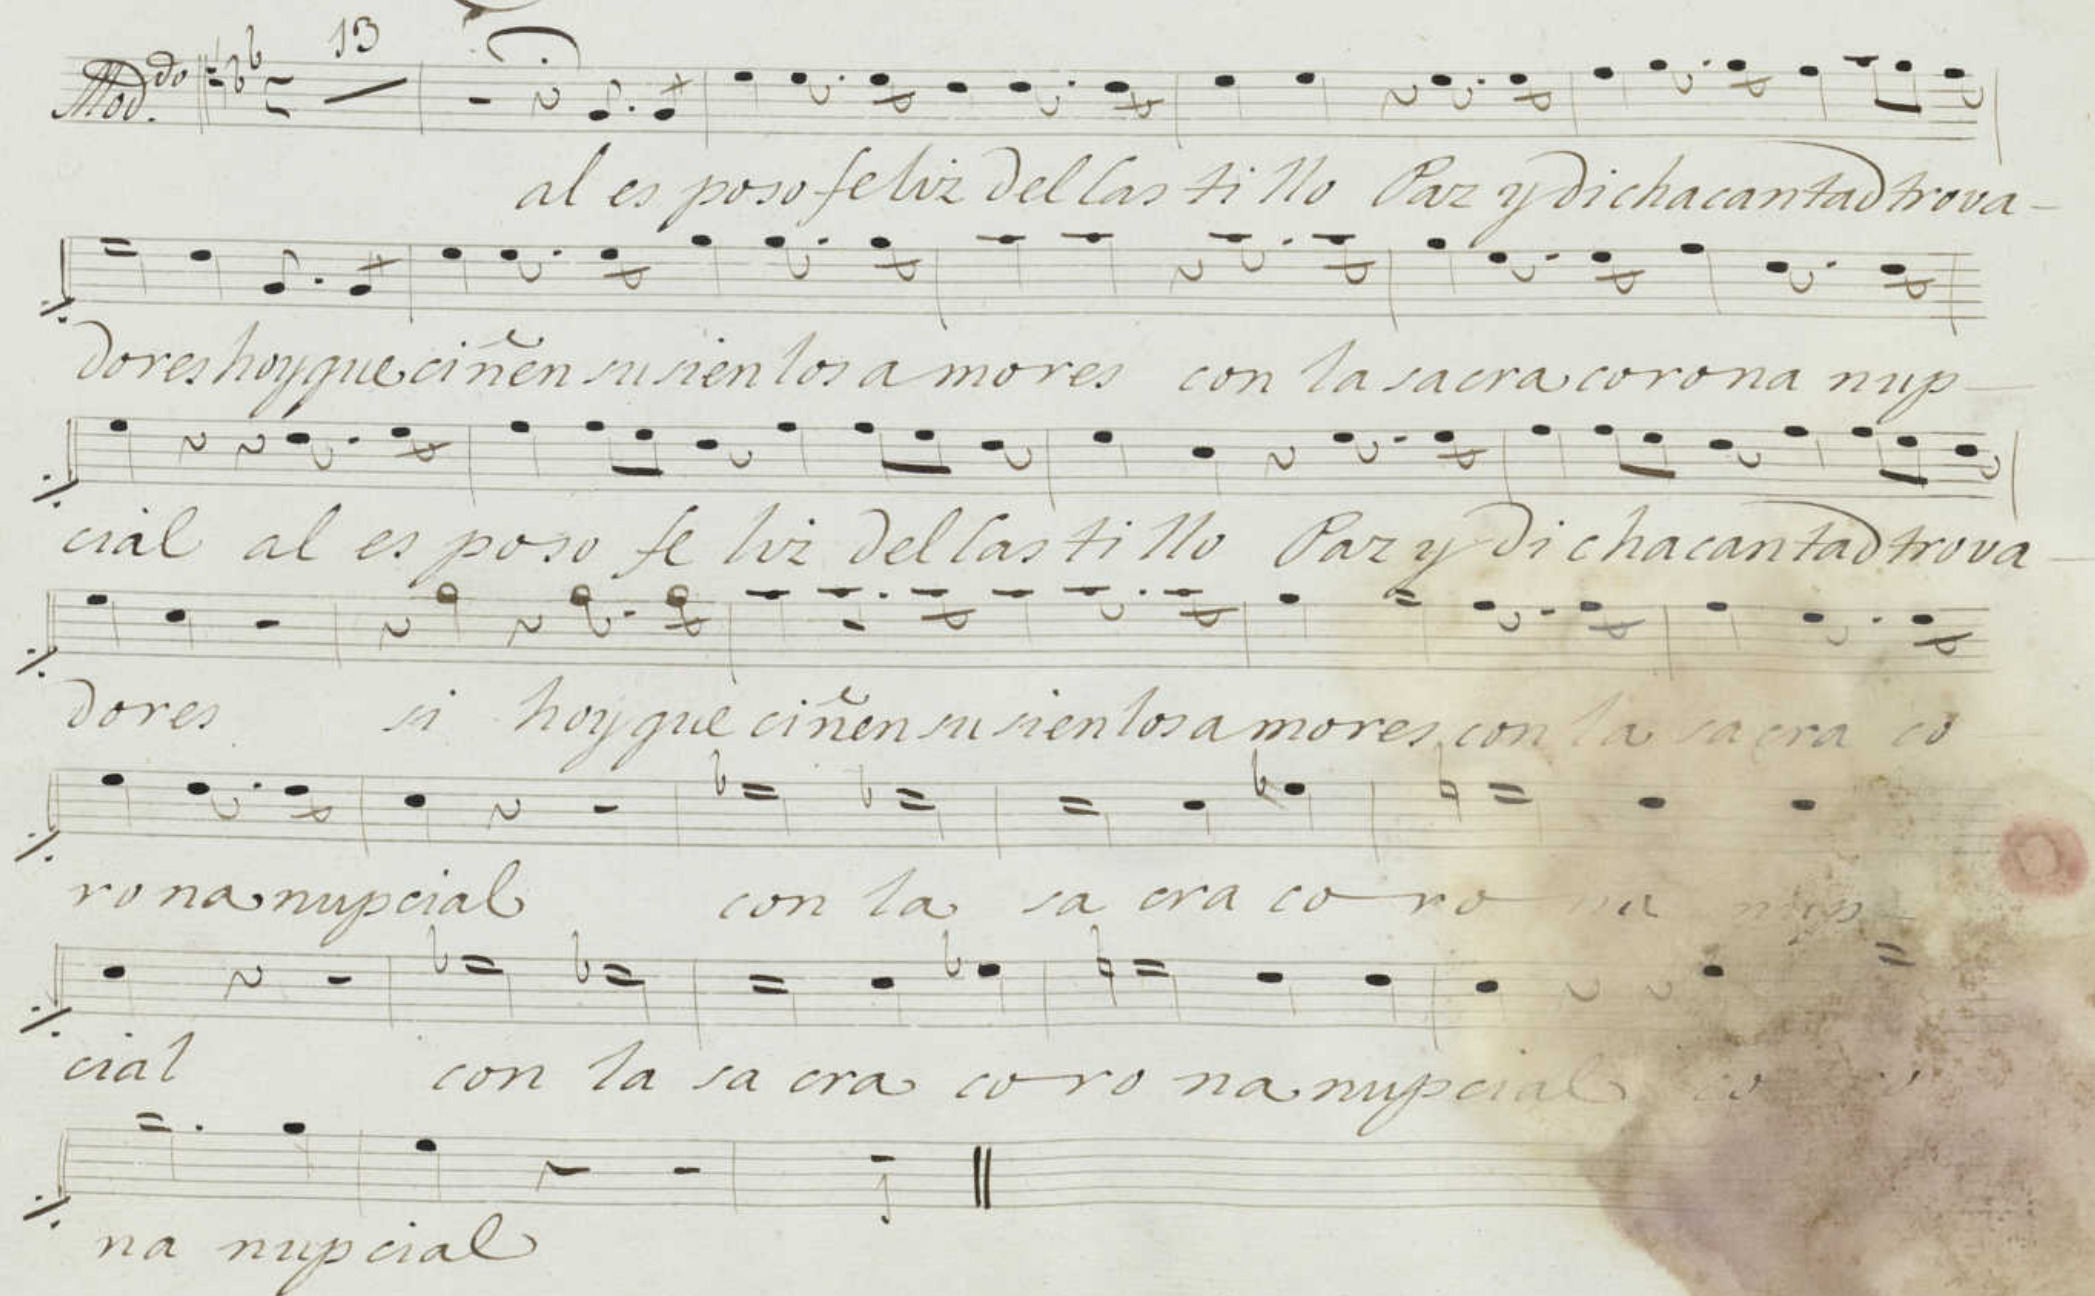 13
Mod.do
al es poso feliz del Cas ti llo Paz y dicha cantad trova-
dores hoy que ciñen su sien los a mores con la sacra corona nup-
cial al es poso fe liz del Cas ti llo Paz y di cha cantad trova-
dores si hoy que ciñen su sien los a mores con la sacra co
ro na nupcial con la sa cra co-ro-na nup-
cial con la sa cra co-ro na nupcial co
na nup cial